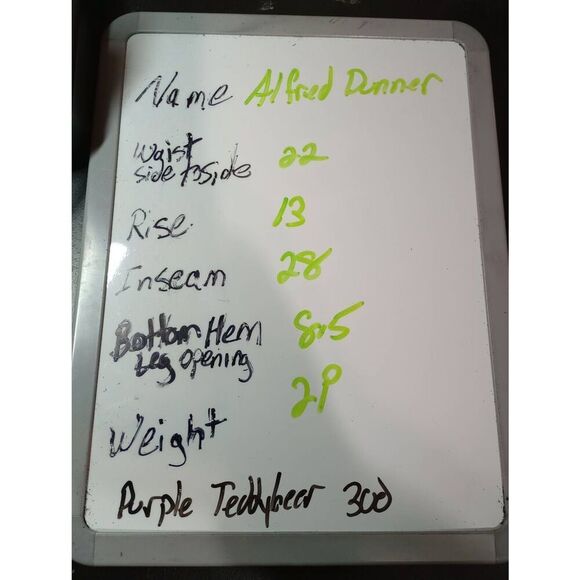 Name Alfred Dunner
Waist
side to side 22
Rise 13
Inseam 28
Bottom Hem 8.5
Leg opening
29
Weight
Purple Teddybear 300